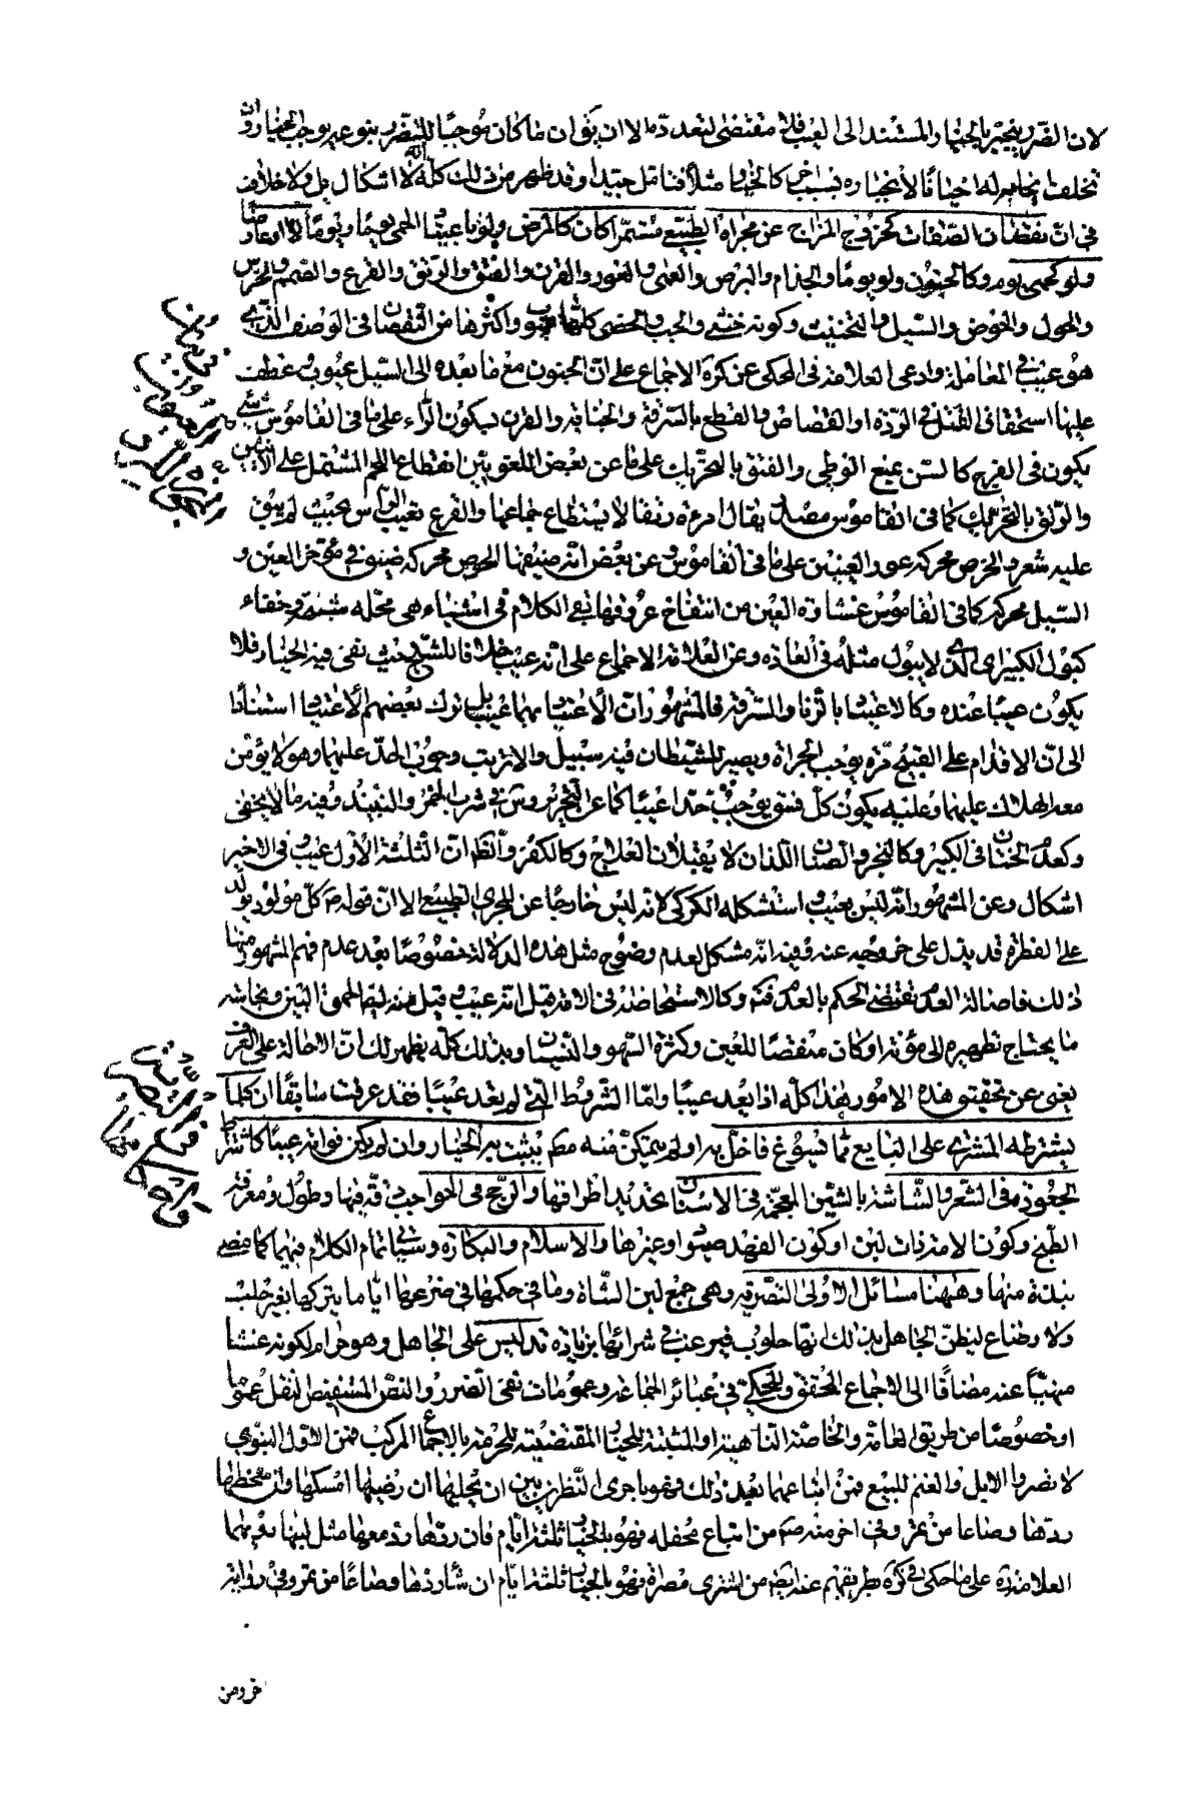 لان الضرر ينجبر بالخيار والمستند الى العيب فلا مقتضى لتعدده الا ان يق ان ما كان موجبا للتضرر بنوعه يوجب الخيار وان
تخلف انجابه له احيانا لانجباره بسبب اخر كالخيار مثلا فتامل جيدا وقد ظهر من ذلك كله انه لا اشكال بل ولا خلاف
في ان نقصان الصفات كخروج المزاج عن مجراه الطبيعي مستمرا كان كالمرض ولو باعتبار الحمى يوما ويوما لا او عارضا
ولو كحمى يوم وكالجنون ولو يوما والجذام والبرص والعمى والعور والقرن والفتق والرتق والقرع والصمم والخرس
والحول والخوص والسبل والتخنيث وكونه خنثى والجب والخصى كلها عيوب واكثرها من النقصان في الوصف الذي
هو عيب في المعاملة وادعى العلامة في المحكى عن كرة الاجماع على ان الجنون مع ما بعده الى السبل عيوب عطف
عليها استحقاق القتل في الردة او القصاص والقطع بالسرقة والجناية والقرن بسكون الراء على ما في القاموس شئ
يكون في الفرج كالسن يمنع الوطي والفتق بالتحريك على ما عن بعض اللغويين انقطاع اللحم المشتمل على الانثيين
والرتق بالتحريك كما في القاموس مصدر يقال امرءة رتقا لا يستطاع جماعها والقرع تعيب الراس بحيث لم يبق
عليه شعر والخوص محركة عور العينين على ما في القاموس وعن بعض انه ضيقها الحوص محركة ضيق في مؤخر العين و
السبل محركة كما في القاموس غشاوة العين من انتفاخ عروقها بقى الكلام في اشياء هي محله شبهة وخفاء
كبول الكبير اي الذي لا يبول مثله في العادة وعن العلامة الاجماع على انه عيب خلافا للشيخ حيث نفى فيه الخيار فلا
يكون عيبا عنده وكالاعتياد بالزنا والسرقة فالمشهور ان الاعتياد بهما عيب بل ترك بعضهم الاعتياد استنادا
الى ان الاقدام على القبيح مرة يوجب الجراة ويصير للشيطان فيه سبيل والا ترتب وجوب الحد عليهما وهو لا يؤمن
معه الهلاك عليهما وعليه يكون كل فسق يوجب حدا عيبا كما عن التحرير وس في شرب الخمر والنبيذ وفيه ما لا يخفى
وكعدم الختان في الكبير وكالبخر والصنان اللذان لا يقبلان العلاج وكالكفر والظ ان الثلثة الاول عيب في الاخير
اشكال وعن المشهور انه ليس بعيب واستشكله الكركى لانه ليس خارجا عن المجرى الطبيعي الا ان قوله ص كل مولود يولد
على الفطرة قد يدل على خروجه عنه وفيه انه مشكل لعدم وضوح مثل هذه الدلالة خصوصا بعد عدم فهم المشهور منها
ذلك فاصالة العدم تقتضى الحكم بالعدم فته وكالاستحاضة في الامة قيل انه عيب وقيل منه ايضا الحمق البين ونجاسة
ما يحتاج تطهيره الى مؤنة او كان منقصا للعين وكثرة السهو والنسيان وبذلك كله يظهر لك ان الاحالة على العرف
يغنى عن تحقيق هذه الامور هذا كله اذا يعد عيبا واما الشروط التى لم يعد عيبا فقد عرفت سابقا ان كلما
يشترطه المشترى على البايع مما يسوغ فاخل به او لم يتمكن منه مط يثبت به الخيار وان لم يكن فواته عيبا كاشتراط
الجعودة في الشعر والشاشة بالشين المعجمة في الاسنان تحديد اطرافها والزجج في الحواجب دقة فيها وطول ومعرفة
الطبخ وكون الامة ذات لبن او كون الفهد صيودا وغيرها والاسلام والبكارة وسياتي تمام الكلام فيهما كما مضى
نبذة منها وهيهنا مسائل الاولى التصرية وهي جمع لبن الشاة وما في حكمها في ضرعها اياما بتركها بغير حلب
ولا رضاع ليظن الجاهل بذلك انها حلوب فيرغب في شرائها بزيادة تدليس على الجاهل وهو حرام لكونه غشا
منهيا عنه مضافا الى الاجماع المحقق والمحكى في عبائر الجماعة وعمومات نفى الضرر والنص المستفيض النقل عموما
او خصوصا من طريق العامة والخاصة الناهية او المثبتة للخيار المقتضية للحرمة بالاجماع المركب فمن الاول النبوي
لا تصروا الابل والغنم للبيع فمن ابتاعها بعد ذلك فهو باحرى النظرين بين ان يحلبها ان رضيها امسكها وان سخطها
ردها وصاعا من تمر وفي اخر منه ص من ابتاع محفلة فهو بالخيار ثلثة ايام فان ردها رد معها مثل لبنها
العلامة ره على ما حكى في كرة بطريقهم عنه ايضا من اشترى مصراة فهو بالخيار ثلثة ايام ان شاء ردها وصاعا من تمر وفي رواية
خرومن